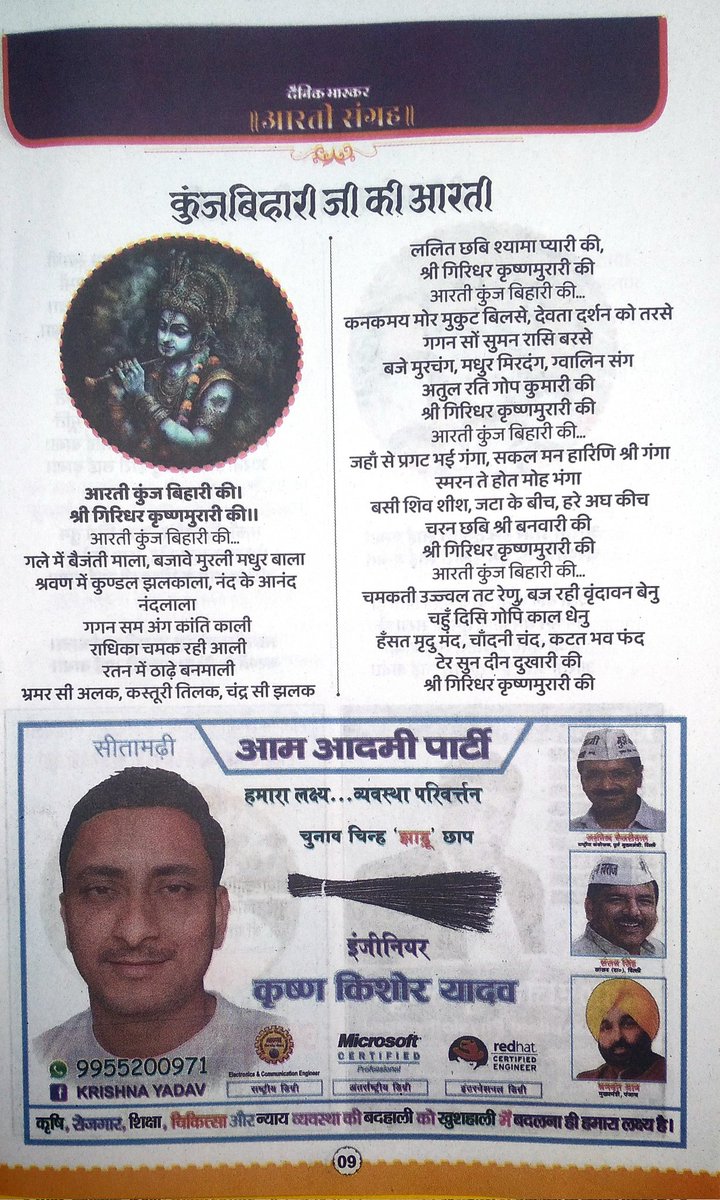 दैनिक भास्कर
॥आरती संग्रह॥
कुंजबिहारी जी की आरती
आरती कुंज बिहारी की।
श्री गिरिधर कृष्णमुरारी की।।
आरती कुंज बिहारी की...
गले में बैजंती माला, बजावे मुरली मधुर बाला
श्रवण में कुण्डल झलकाला, नंद के आनंद
नंदलाला
गगन सम अंग कांति काली
राधिका चमक रही आली
रतन में ठाढ़े बनमाली
भ्रमर सी अलक, कस्तूरी तिलक, चंद्र सी झलक
ललित छबि श्यामा प्यारी की,
श्री गिरिधर कृष्णमुरारी की
आरती कुंज बिहारी की...
कनकमय मोर मुकुट बिलसे, देवता दर्शन को तरसे
गगन सों सुमन रासि बरसे
बजे मुरचंग, मधुर मिरदंग, ग्वालिन संग
अतुल रति गोप कुमारी की
श्री गिरिधर कृष्णमुरारी की
आरती कुंज बिहारी की...
जहाँ से प्रगट भई गंगा, सकल मन हारिणि श्री गंगा
स्मरन ते होत मोह भंगा
बसी शिव शीश, जटा के बीच, हरे अघ कीच
चरन छबि श्री बनवारी की
श्री गिरिधर कृष्णमुरारी की
आरती कुंज बिहारी की...
चमकती उज्ज्वल तट रेणु, बज रही वृंदावन बेनु
चहुँ दिसि गोपि काल धेनु
हँसत मृदु मंद, चाँदनी चंद, कटत भव फंद
टेर सुन दीन दुखारी की
श्री गिरिधर कृष्णमुरारी की
सीतामढ़ी
आम आदमी पार्टी
हमारा लक्ष्य...व्यवस्था परिवर्त्तन
चुनाव चिन्ह 'झाड़ू' छाप
इंजीनियर
कृष्ण किशोर यादव
9955200971
KRISHNA YADAV
Electronics & Communication Engineer
राष्ट्रीय डिग्री
Microsoft
CERTIFIED
Professional
अंतर्राष्ट्रीय डिग्री
redhat
CERTIFIED
ENGINEER
इंटरनेशनल डिग्री
अरविन्द केजरीवाल
राष्ट्रीय संयोजक, पूर्व मुख्यमंत्री, दिल्ली
संजय सिंह
सांसद (रा०), दिल्ली
भगवंत मान
मुख्यमंत्री, पंजाब
कृषि, रोजगार, शिक्षा, चिकित्सा और न्याय व्यवस्था की बदहाली को खुशहाली में बदलना ही हमारा लक्ष्य है।
09